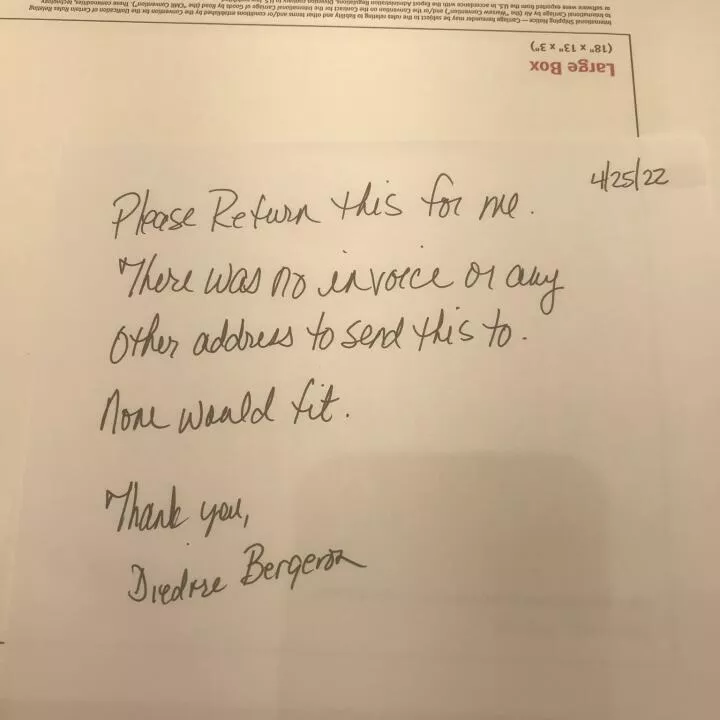 International Shipping Notice — Carriage hereunder may be subject to the rules relating to liability and other terms and/or conditions established by the Convention for the Unification of Certain Rules Relating
to International Carriage by Air (the "Warsaw Convention") and/or the Convention on the Contract for the International Carriage of Goods by Road (the "CMR Convention"). These commodities, technology
or software were exported from the U.S. in accordance with the Export Administration Regulations. Diversion contrary to U.S. law
Large Box
(18" x 13" x 3")
4/25/22
Please Return this for me.
There was no invoice or any
other address to send this to.
None would fit.
Thank you,
Diedre Bergeron